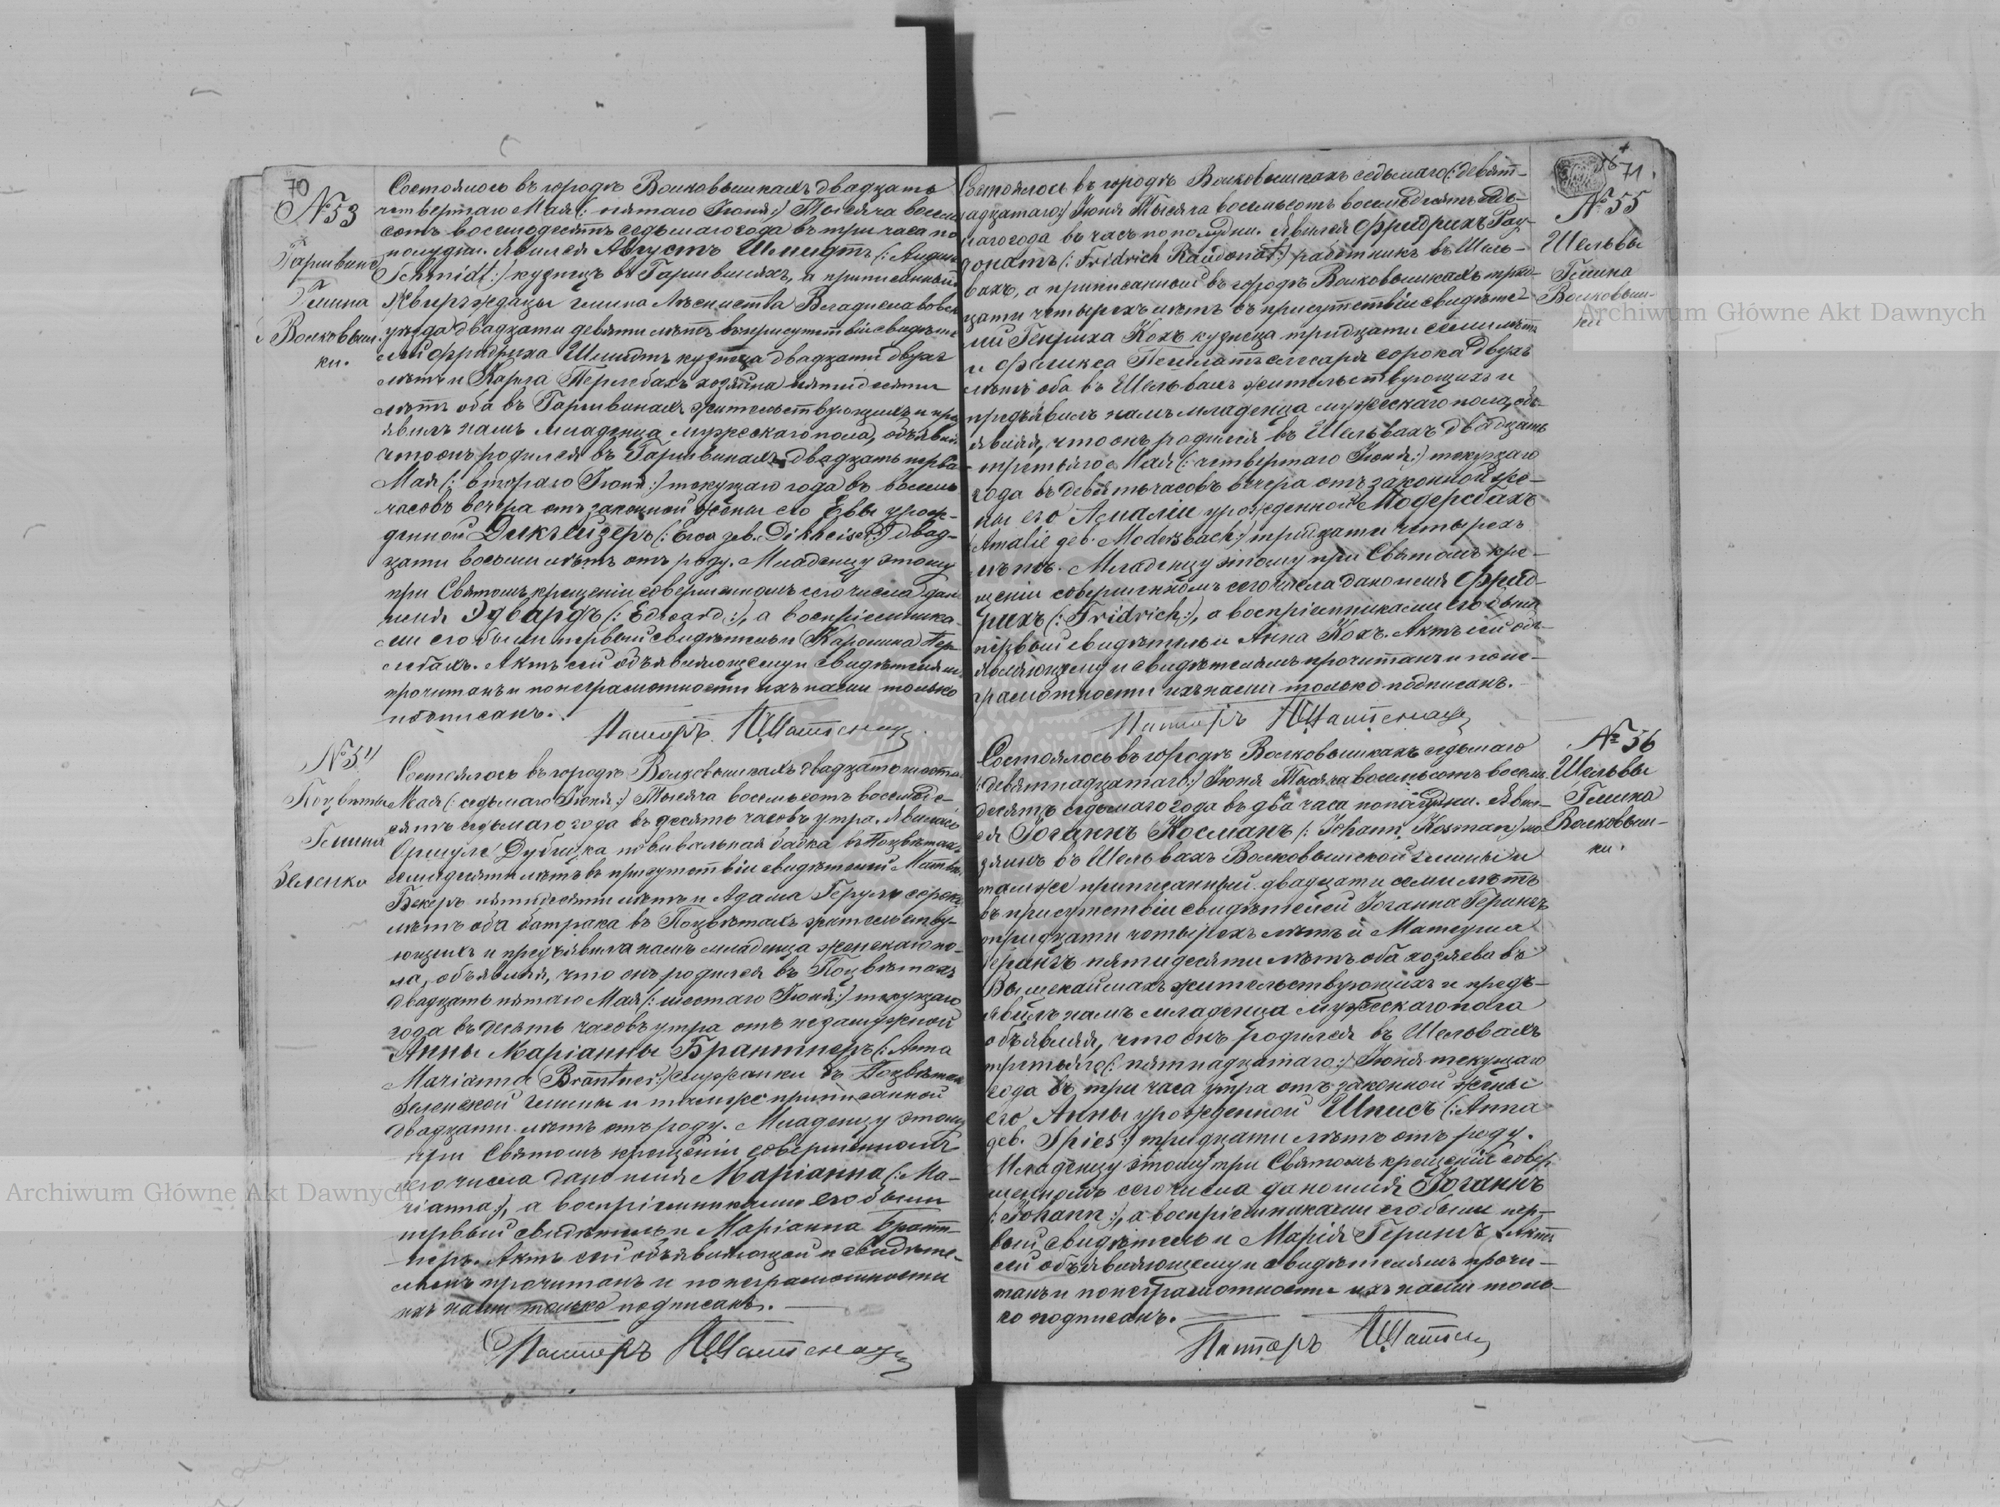 70
№ 53
Гаршвине
Гмина
Волковыш-
ки.
Состоялось въ городѣ Волковышкахъ двадцать
четвертаго Мая (: пятаго Іюня :) Тысяча восемь
сотъ восемьдесятъ седьмаго года въ три часа по
полудни. Явился Августъ Шмидтъ (: August
Schmidt :) кузнецъ въ Гаршвиняхъ, а приписанный
гмина Владиславовск
уѣзда двадцати девяти лѣтъ въ присутствіи свидѣте
лей Фридриха Шмидтъ кузнеца двадцати двухъ
лѣтъ и Карла Перлебахъ хозяина пятидесяти
лѣтъ оба въ Гаршвинахъ жительствующихъ и пред
явилъ намъ младенца мужескаго пола, объявляя
что онъ родился въ Гаршвинахъ двадцать перва
Мая (: втораго Іюня :) текущаго года въ восемь
часовъ вечера отъ законной жены его Евы урож-
денной Дикгейзеръ (: Ewa geb. Dikheiser :) двад-
цати восьми лѣтъ отъ роду. Младенцу этому
при Святомъ крещеніи совершенномъ сего числа дан
имя Эдвардъ (: Edward :), а воспріемника-
ми его были первый свидѣтель и Каролина Пер
лебахъ. Актъ сей объявляющему и свидѣтелямъ
прочитанъ и по неграмотности ихъ нами только
подписанъ.
Пасторъ
№ 54
Поцвѣты
Гмина
Зеленко
Состоялось въ городѣ Волковышкахъ двадцать шеста
Мая (: седьмаго Іюня :) Тысяча восемьсотъ восемьде-
сятъ седьмаго года въ десять часовъ утра. Явилась
Оршуля Дубицка повивальная бабка въ Поцвѣтахъ
семидесяти лѣтъ въ присутствіи свидѣтелей Матвѣя
Бекеръ пятидесяти лѣтъ и Адама Геруль сорока
лѣтъ оба батрака въ Поцвѣтахъ жительству-
ющихъ и предъявила намъ младенца женскаго по-
ла, объявляя, что онъ родился въ Поцвѣтахъ
двадцать пятаго Мая (: шестаго Іюня :) текущаго
года въ десять часовъ утра отъ незамужной
Анны Маріанны Брантнеръ (: Anna
Marianna Brantner :) служанки въ Поцвѣтахъ
Зеленской гмины и тамже приписанной
двадцати лѣтъ отъ роду. Младенцу этому
при Святомъ крещеніи совершенномъ
сего числа дано имя Маріанна (: Ma-
rianna :), а воспріемниками его были
первый свидѣтель и Маріанна Брант-
неръ. Актъ сей объявляющей и свидѣте-
лямъ прочитанъ и по неграмотности
ихъ нами только подписанъ.
Пасторъ
71.
№ 55
Шельвы
Гмина
Волковыш-
ки
Состоялось въ городѣ Волковышкахъ седьмаго (: девят-
надцатаго :) Іюня Тысяча восемьсотъ восемьдесятъ седь-
маго года въ часъ по полудни. Явился Фридрихъ Рау-
донатъ (: Fridrich Raudonat :) работникъ въ Шель-
вахъ, а приписанный въ городѣ Волковышкахъ трид-
цати четырехъ лѣтъ въ присутствіи свидѣте-
лей Генриха Кохъ кузнеца тридцати семи лѣтъ
и Феликса слесаря сорока двухъ
лѣтъ оба въ Шельвахъ жительствующихъ и
предъявилъ намъ младенца мужескаго пола, объ-
являя, что онъ родился въ Шельвахъ двадцать
третьяго Мая (: четвертаго Іюня :) текущаго
года въ девять часовъ вечера отъ законной же-
ны его Амаліи урожденной Модерсбахъ
(Amalie geb. Modersbach :) тридцати четырехъ
лѣтъ. Младенцу этому при Святомъ кре-
щеніи совершенномъ сего числа дано имя Фрид-
рихъ (: Fridrich :), а воспріемниками его были
первый свидѣтель и Анна Кохъ. Актъ сей объ-
являющему и свидѣтелямъ прочитанъ и по не-
грамотности ихъ нами только подписанъ.
Пасторъ
№ 56
Шельвы
Гмина
Волковыш-
ки.
Состоялось въ городѣ Волковышкахъ седьмаго
(: девятнадцатаго :) Іюня Тысяча восемьсотъ восемь
десятъ седьмаго года въ два часа по полудни. Явил-
ся Іоганнъ Косманъ (: Johann Kosman) хо
зяинъ въ Шельвахъ Волковышской гмины и
тамже приписанный двадцати семи лѣтъ
въ присутствіи свидѣтелей Іоганна Герингъ
тридцати четырехъ лѣтъ и Матеуша
Герингъ пятидесяти лѣтъ оба хозяева въ
жительствующихъ и предъ-
явилъ намъ младенца мужескаго пола
объявляя, что онъ родился въ Шельвахъ
третьяго (: пятнадцатаго :) Іюня текущаго
года въ три часа утра отъ законной жены
его Анны урожденной Шписъ (: Anna
geb. Spies :) тридцати лѣтъ отъ роду.
Младенцу этому при Святомъ крещеніи совер-
шенномъ сего числа дано имя Іоганнъ
(: Johann :), а воспріемниками его были пер-
вый свидѣтель и Марія Герингъ. Актъ
сей объявляющему и свидѣтелямъ прочи-
танъ и по неграмотности ихъ нами толь-
ко подписанъ.
Пасторъ
Archiwum Główne Akt Dawnych
Archiwum Główne Akt Dawnych